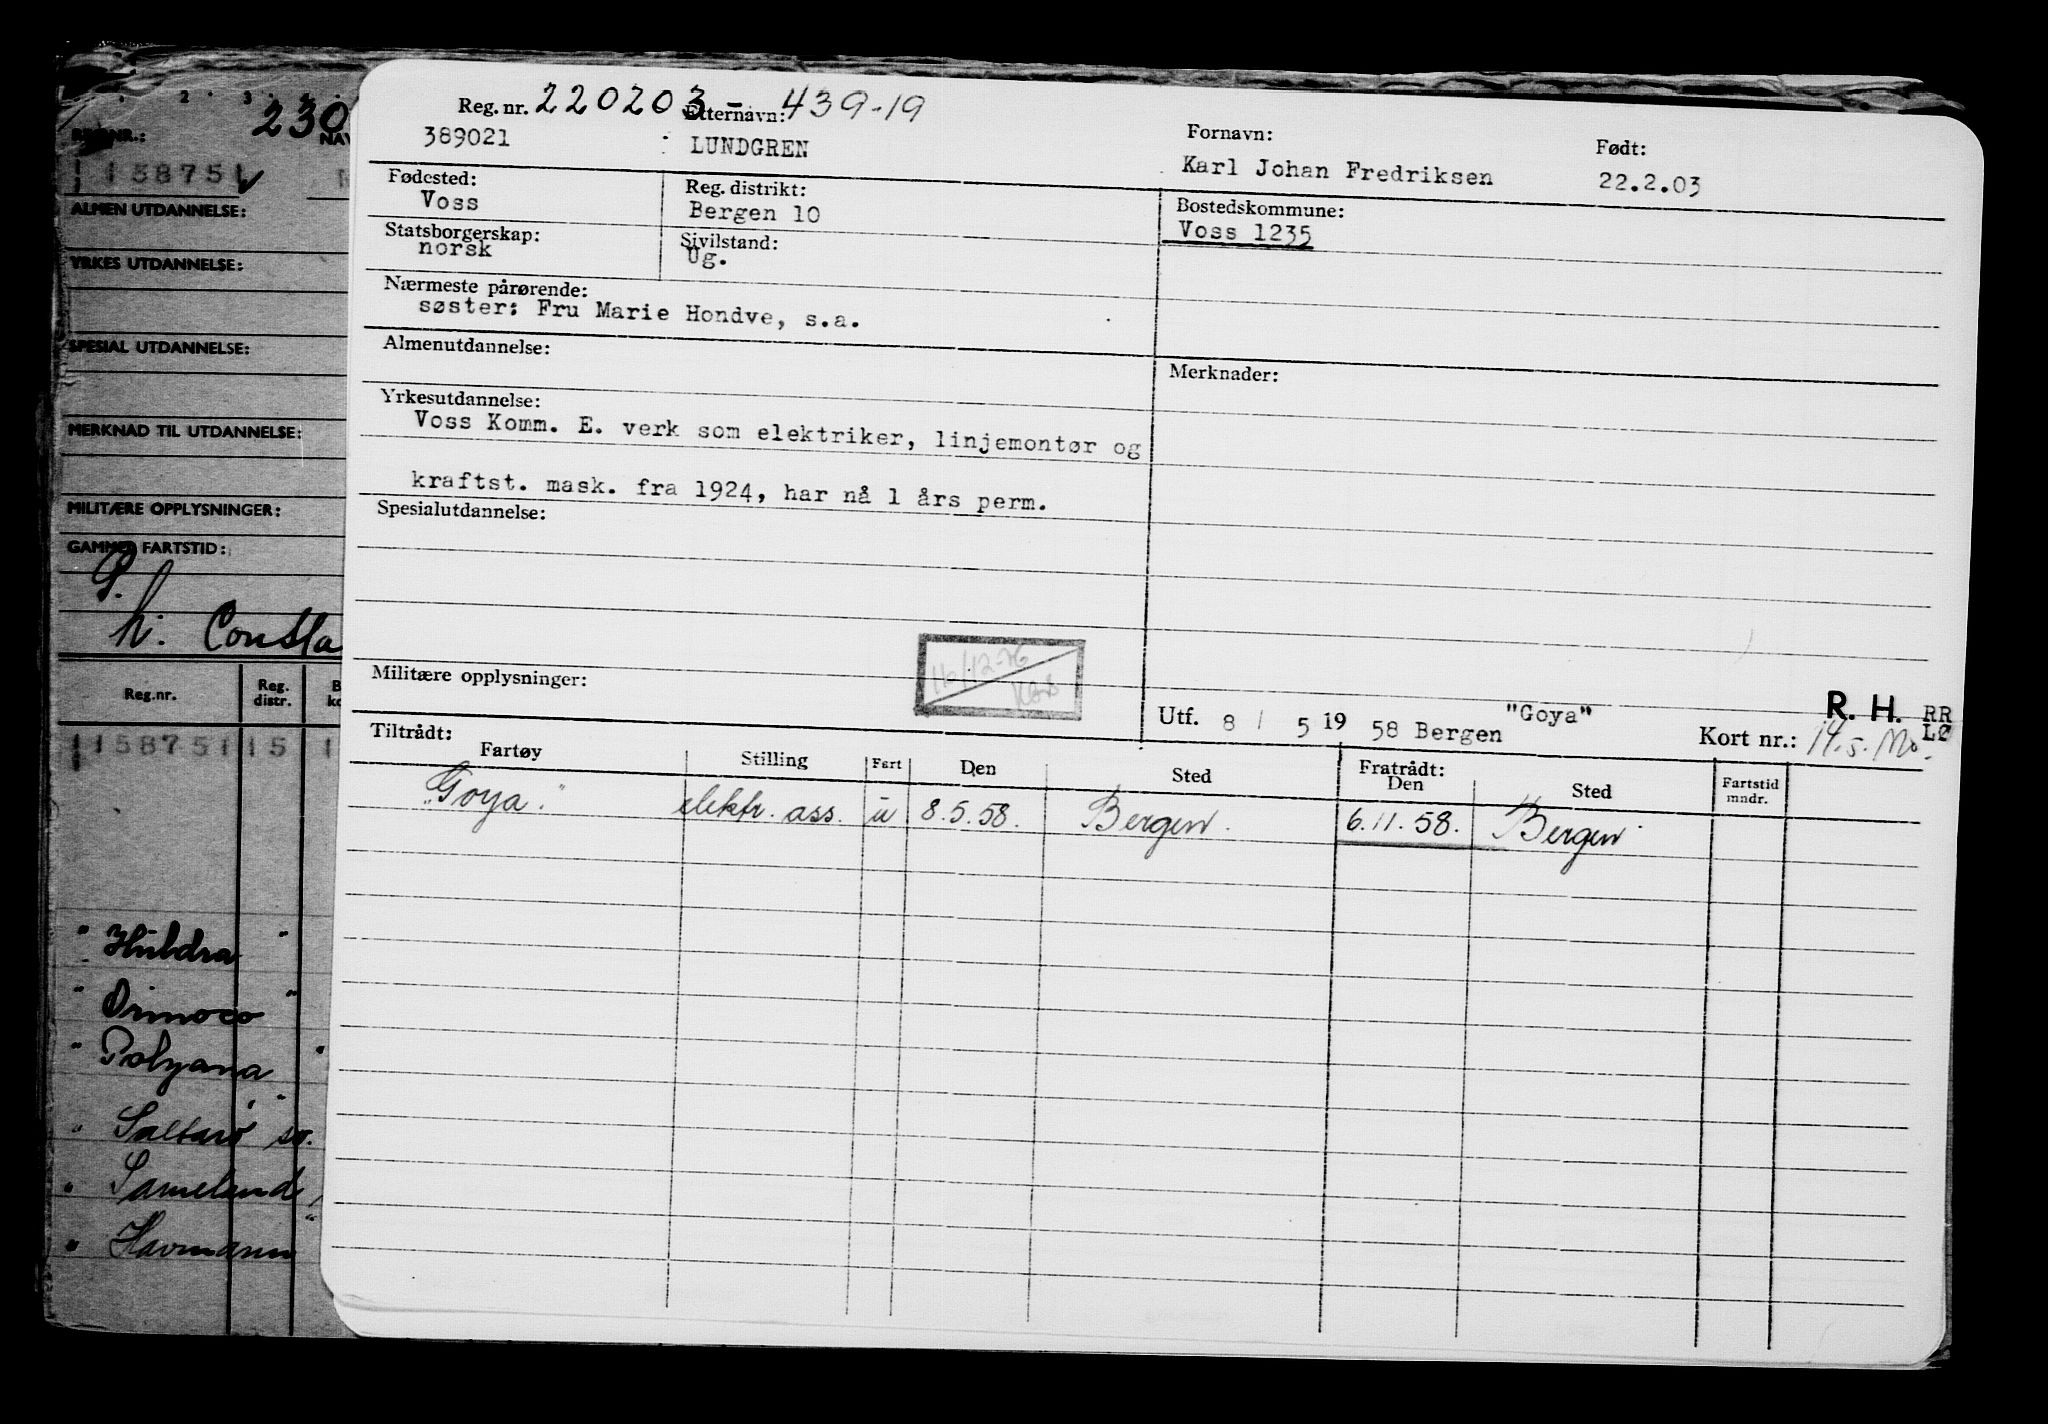 Reg. nr. 220203 Etternavn: - 439-19
389021 LUNDGREN
Fornavn: Født:
Karl Johan Fredriksen 22.2.03
Fødested: Reg. distrikt: Bostedskommune:
Voss Bergen 10 Voss 1235
Statsborgerskap: Sivilstand:
norsk Ug.
Nærmeste pårørende:
søster: Fru Marie Hondve, s.a.
Almenutdannelse: Merknader:
Yrkesutdannelse:
Voss Komm. E. verk som elektriker, linjemontør og
kraftst. mask. fra 1924, har nå 1 års perm.
Spesialutdannelse:
16/12-76
Militære opplysninger:
R. H. RR
LØ
Utf. 8 / 5 19 58 Bergen "Goya" Kort nr.:
Tiltrådt: Fratrådt:
Fartøy Stilling Fart Den Sted Den Sted Fartstid mndr.
"Goya." elektr. ass. u 8.5.58. Bergen. 6.11.58. Bergen.
230
REG.NR.: NAV
158751
ALMEN UTDANNELSE:
YRKES UTDANNELSE:
SPESIAL UTDANNELSE:
MERKNAD TIL UTDANNELSE:
MILITÆRE OPPLYSNINGER:
GAMMEL FARTSTID:
h. Consta
Reg.nr. Reg. distr. B ko
158751 15 1
"Huldra"
"Orinoco"
"Polyana"
"Saltarö" sv.
"Sameland"
"Havmann"